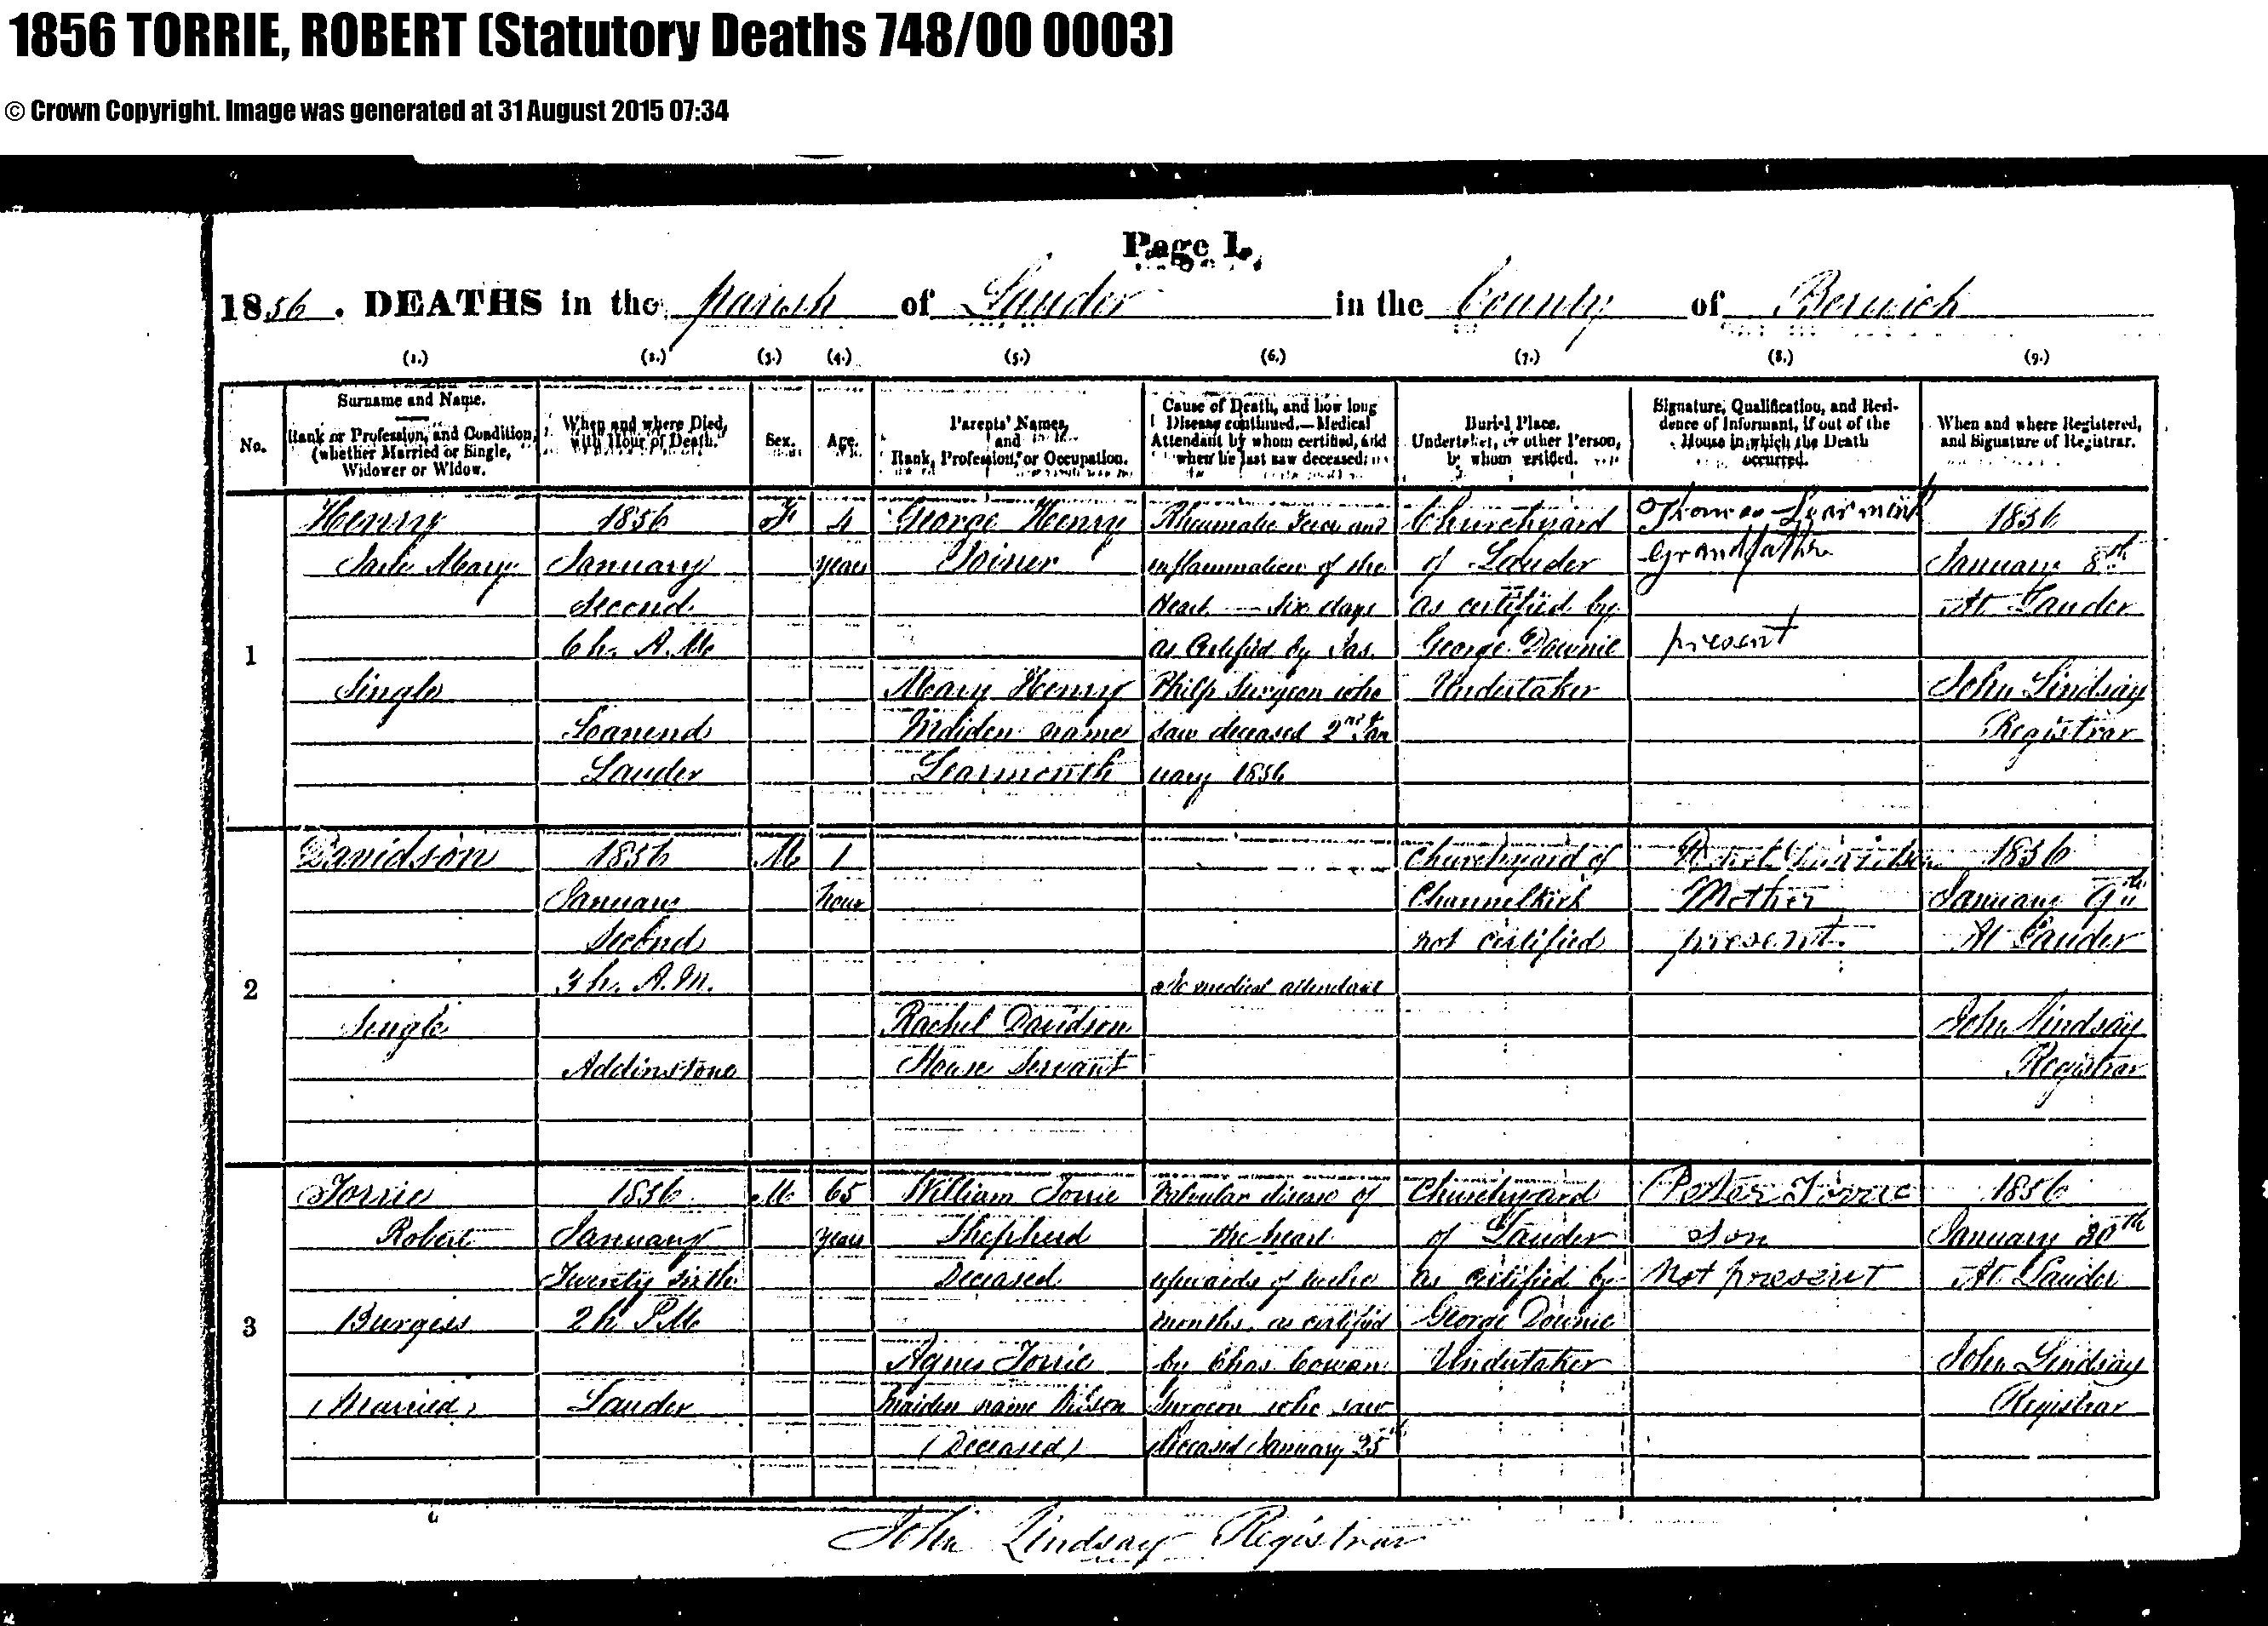 1856 TORRIE, ROBERT (Statutory Deaths 748/00 0003)
© Crown Copyright. Image was generated at 31 August 2015 07:34
Page 1.
1856. DEATHS in the parish of Lauder in the County of Berwick
(1.) (2.) (3.) (4.) (5.) (6.) (7.) (8.) (9.)
No.
Surname and Name.
Rank or Profession, and Condition,
(whether Married or Single,
Widower or Widow.
When and where Died,
with Hour of Death.
Sex.
Age.
Parents' Names,
and
Rank, Profession, or Occupation.
Cause of Death, and how long
Disease continued.—Medical
Attendant by whom certified, and
when he last saw deceased.
Burial Place.
Undertaker, or other Person,
by whom certified.
Signature, Qualification, and Resi-
dence of Informant, if out of the
House in which the Death
occurred.
When and where Registered,
and Signature of Registrar.
1
Henry
Mary
Single
1856
January
Second
6 h. A.M.
Loanend
Lauder
F
4
years
George Henry
Joiner
Mary Henry
Maiden name
Learmonth
Rheumatic Fever and
inflammation of the
Heart — six days
as Certified by Jas.
Philp Surgeon who
saw deceased 2nd Jan
uary 1856
Churchyard
of Lauder
as certified by
George Downie
Undertaker
Thomas Learmont
Grandfather
present
1856
January 8th
At Lauder
John Lindsay
Registrar
2
Davidson
Single
1856
January
Second
3 h. A.M.
Addinstone
M
1
hour
Rachel Davidson
House Servant
No medical attendant
Churchyard of
Channelkirk
not certified
Davidson
Mother
present
1856
January 9th
At Lauder
John Lindsay
Registrar
3
Torrie
Robert
Burgess
(Married)
1856
January
Twenty sixth
2 h. P.M.
Lauder
M
65
years
William Torrie
Shepherd
Deceased
Agnes Torrie
Maiden name
(Deceased)
Valvular disease of
the heart
upwards of twelve
months, as certified
by Chas. Cowan
Surgeon who saw
deceased January 25th
Churchyard
of Lauder
as certified by
George Downie
Undertaker
Peter Torrie
Son
Not present
1856
January 30th
At Lauder
John Lindsay
Registrar
John Lindsay Registrar